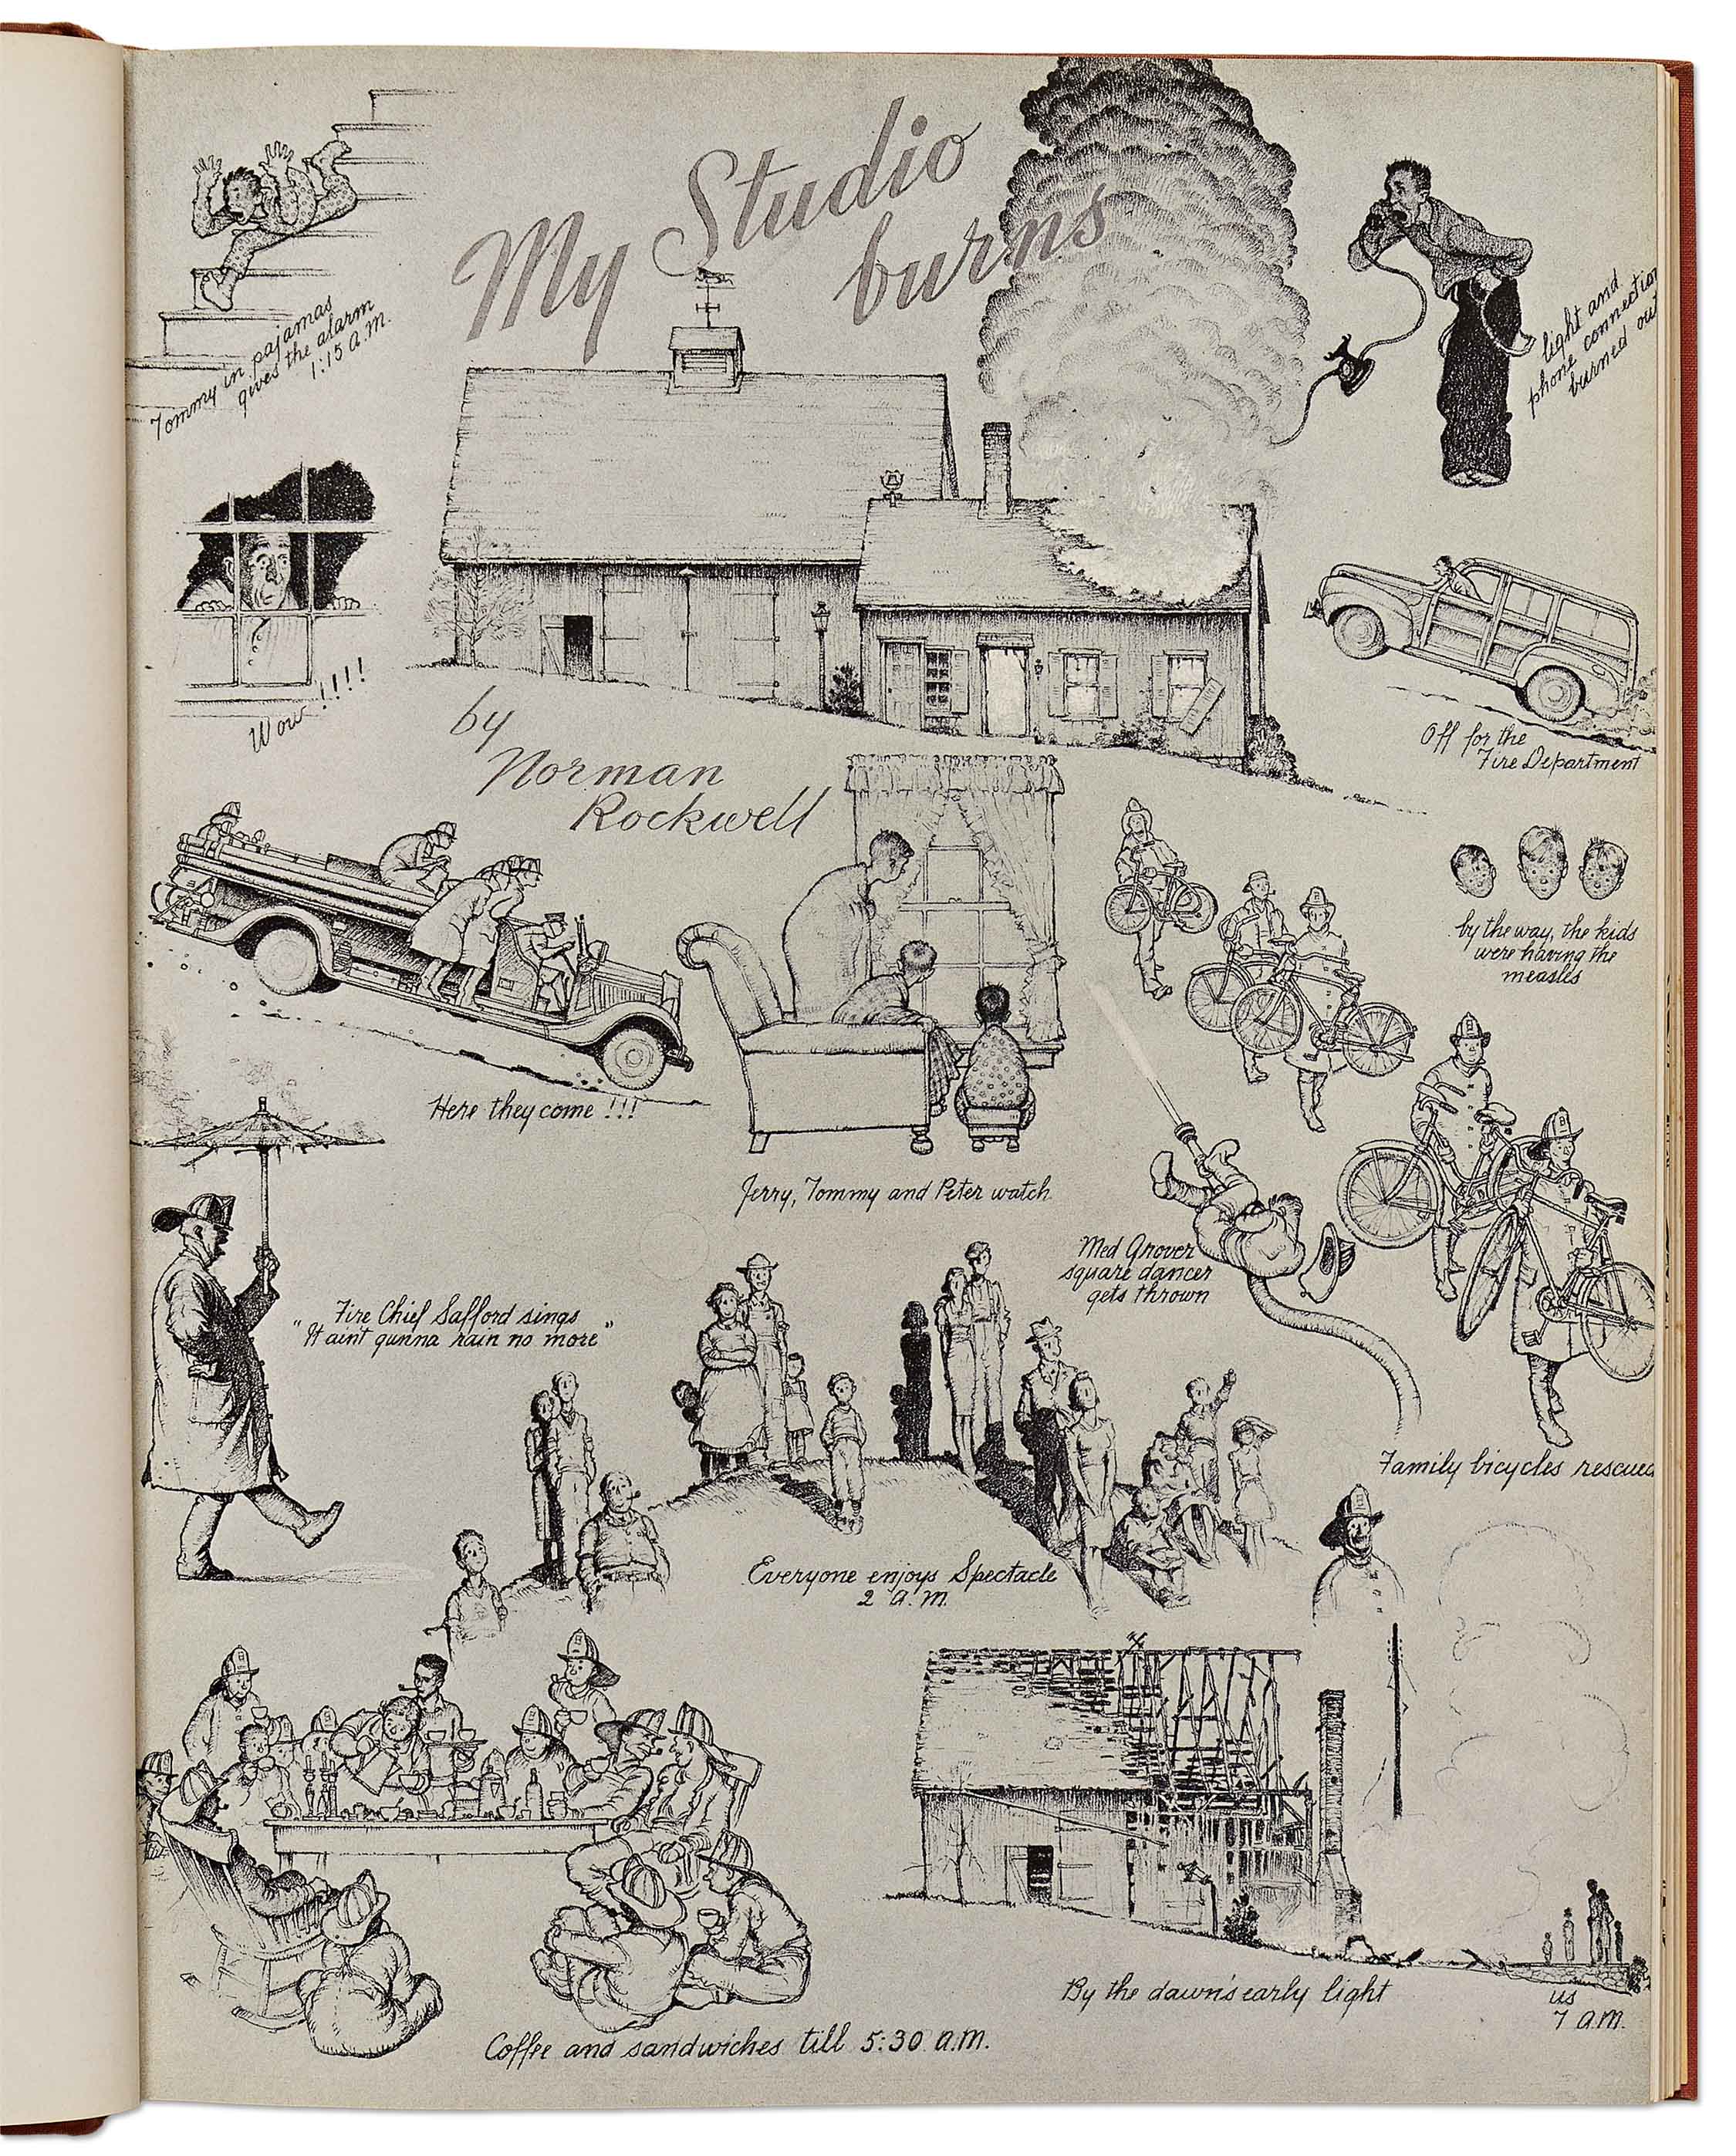 My Studio
burns
Tommy in pajamas
gives the alarm
1:15 a.m.
light and
phone connection
burned out
Wow!!!!
by
Norman
Rockwell
Off for the
Fire Department
by the way, the kids
were having the
measles
Here they come!!!
Jerry, Tommy and Peter watch
Med Grover
square dancer
gets thrown
Fire Chief Safford sings
"It aint gunna rain no more"
Family bicycles rescued
Everyone enjoys Spectacle
2 a.m.
By the dawn's early light
us
7 a.m.
Coffee and sandwiches till 5:30 a.m.